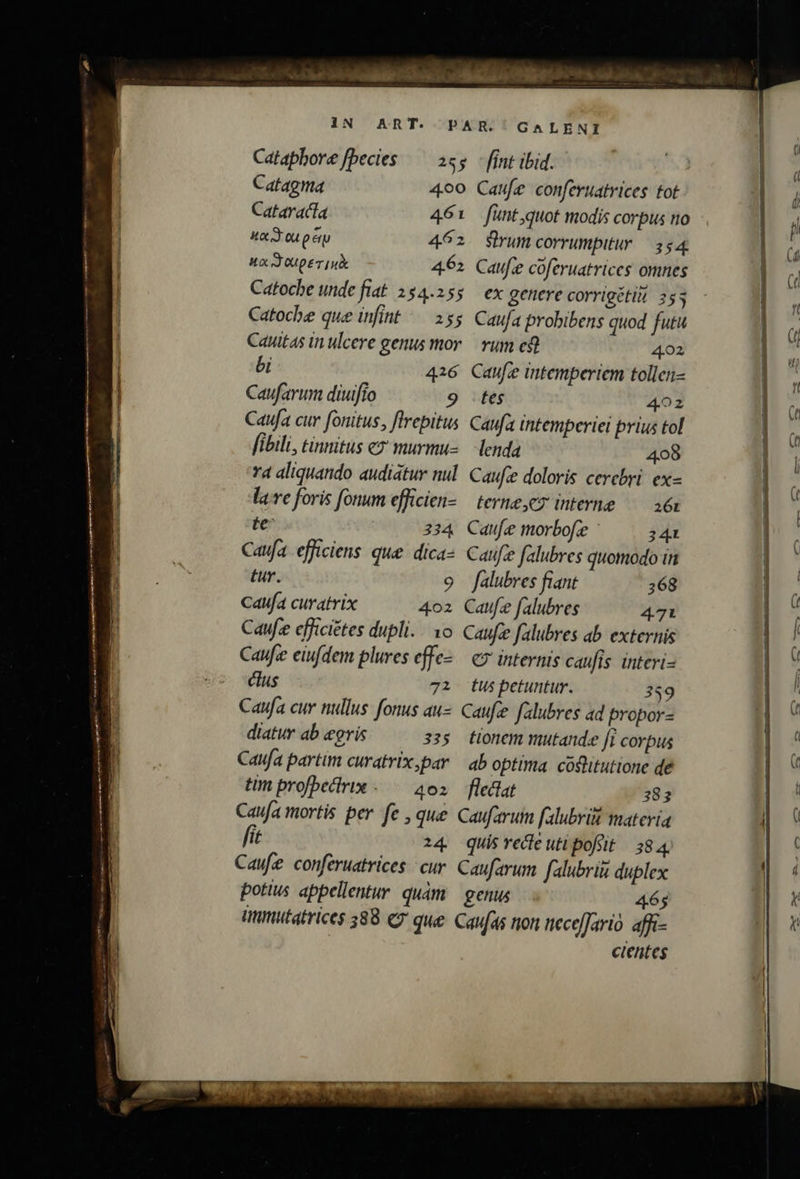 IN ART. PAR. GALENI
Cataphoræ ſpecies 255
Catagma 400
Cataracta 461
καθουρεῖν 462
καθουρετικὰ 462
Catoche unde fiat 254.255
Catochæ quæ inſint 255
Cauitas in ulcere genus mor
bi 426
Cauſarum diuiſio 9
Cauſa cur ſonitus, ſtrepitus
ſibili, tinnitus & murmu=
ra aliquando audiātur nul
la re foris ſonum efficien=
te 334
Cauſa efficiens quæ dica=
tur. 9
Cauſa curatrix 402
Cauſæ efficiētes dupli. 10
Cauſæ eiuſdem plures effe=
ctus 72
Cauſa cur nullus ſonus au=
diatur ab ægris 335
Cauſa partim curatrix,par
tim proſpectrix 402
Cauſa mortis per ſe , quæ
fit 24
Cauſæ conſeruatrices cur
potius appellentur quàm
immutatrices 388 & quæ
ſint ibid.
Cauſæ conſeruatrices tot
ſunt,quot modis corpus no
ſtrum corrumpitur 354
Cauſæ cōſeruatrices omnes
ex genere corrigētiū 355
Cauſa prohibens quod futu
rum eſt 402
Cauſæ intemperiem tollen=
tes 402
Cauſa intemperiei prius tol
lenda 408
Cauſæ doloris cerebri ex=
ternæ,& internæ 261
Cauſæ morboſæ 341
Cauſæ ſalubres quomodo in
ſalubres fiant 368
Cauſæ ſalubres 471
Cauſæ ſalubres ab externis
& internis cauſis interi=
tus petuntur. 359
Cauſæ ſalubres ad propor=
tionem mutandæ ſi corpus
ab optima cōſtitutione de
flectat 383
Cauſarum ſalubriū materia
quis recte uti poſſit 384
Cauſarum ſalubriū duplex
genus 465
Cauſas non neceſſariò affi=
cientes